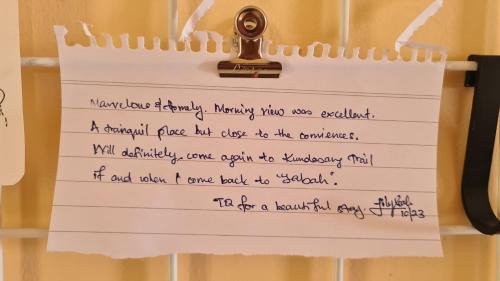 Marvelous & homely. Morning view was excellent.
A tranquil place but close to the conviences.
Will definitely come again to Kundasang Trail
if and when I come back to "Sabah".
TQ for a beautiful stay.
10/23